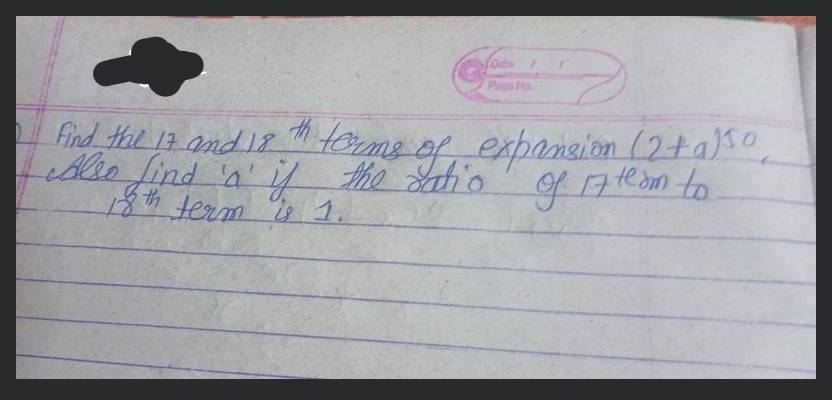 Date / /
Page No.
Find the 17 and 18 th terms of expansion (2+a)50.
Also find 'a' if the ratio of 17 term to
18th term is 1.